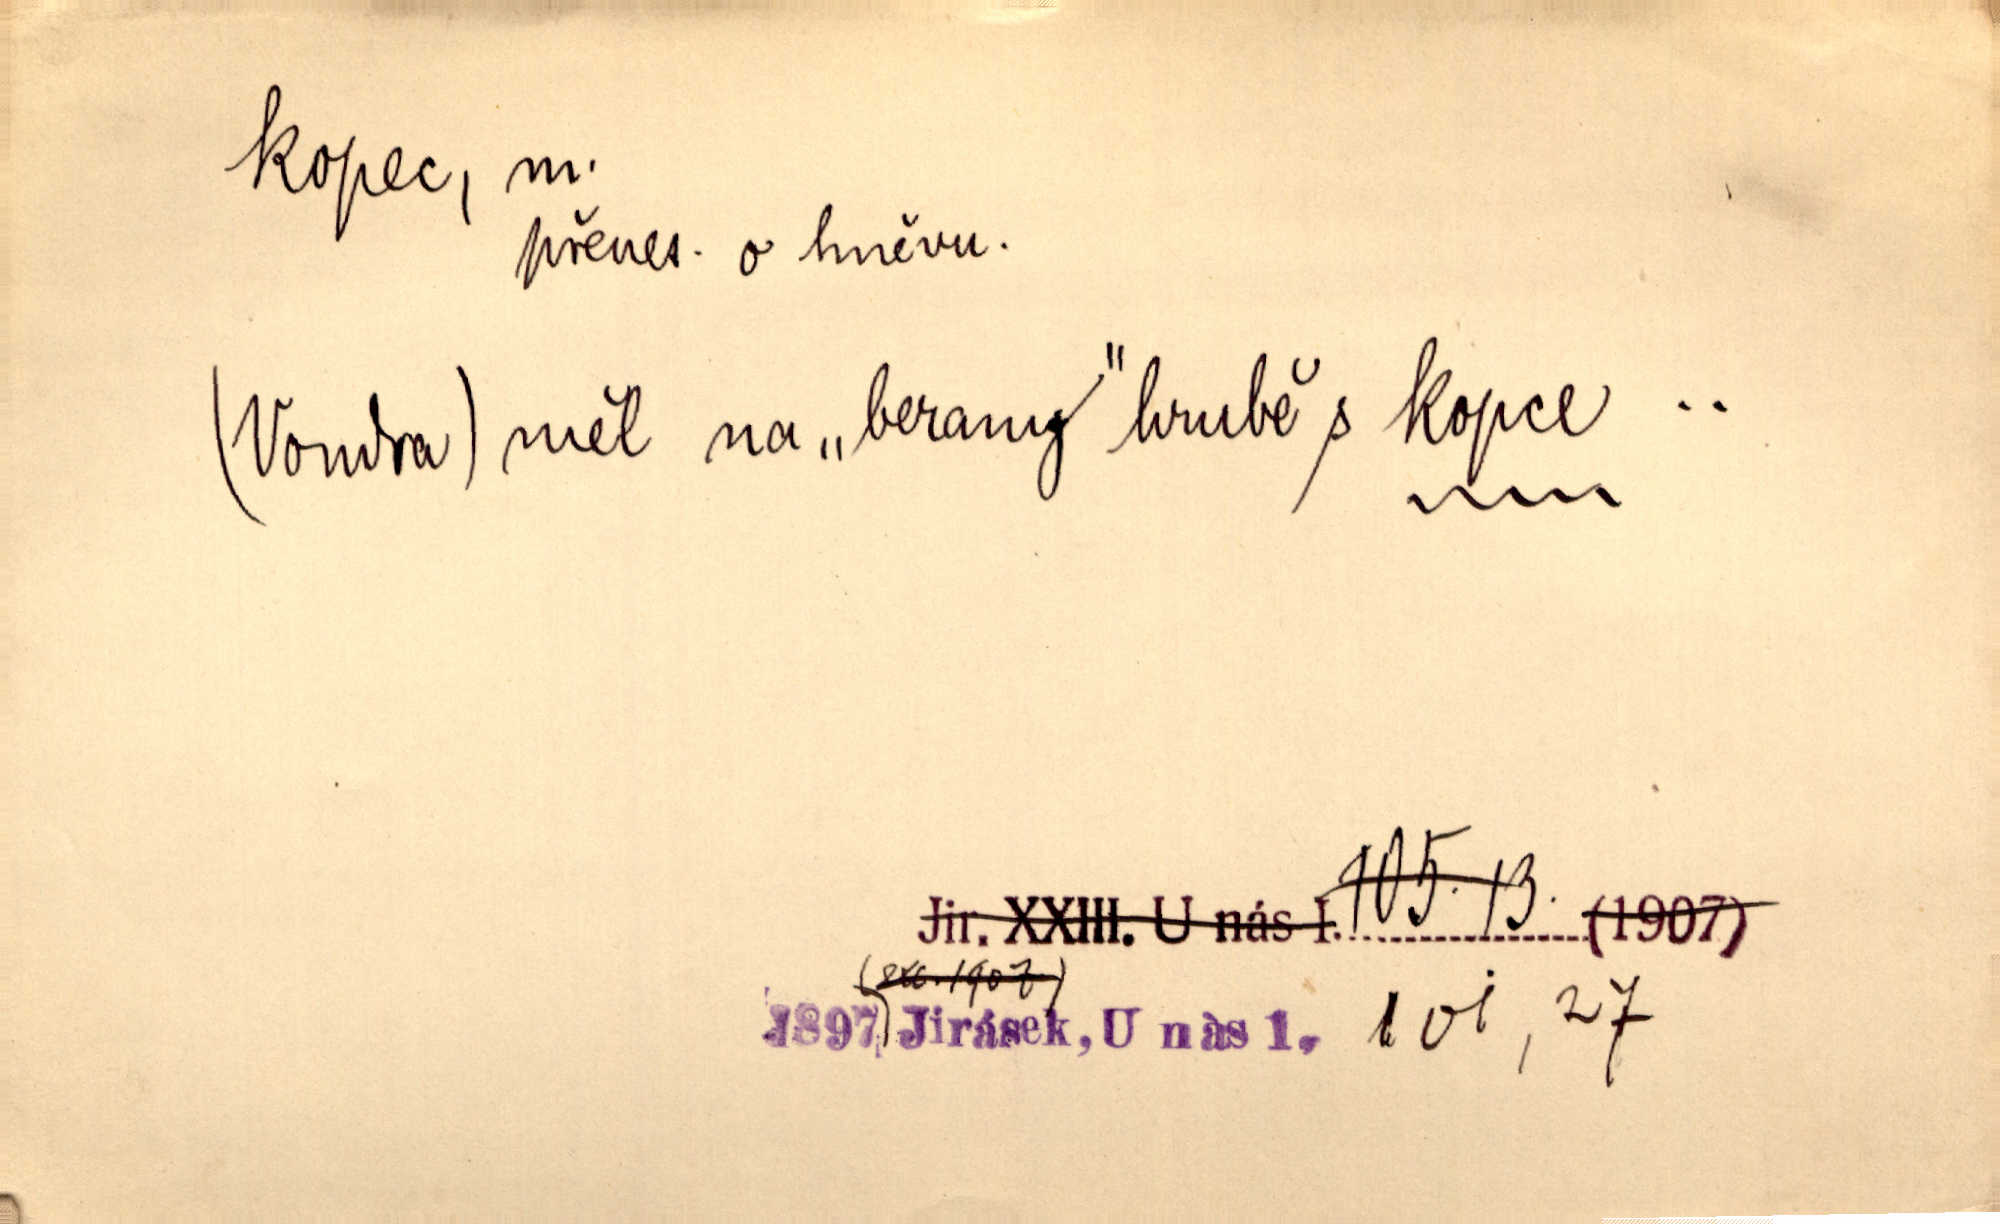 kopec, m.
přenes. o hněvu.
(Vondra) měl na „berany" hrubě s kopce ..
Jir. XXIII. U nás I. 105. 13. (1907)
(exc. 1907)
1897 Jirásek, U nàs 1. 101, 27